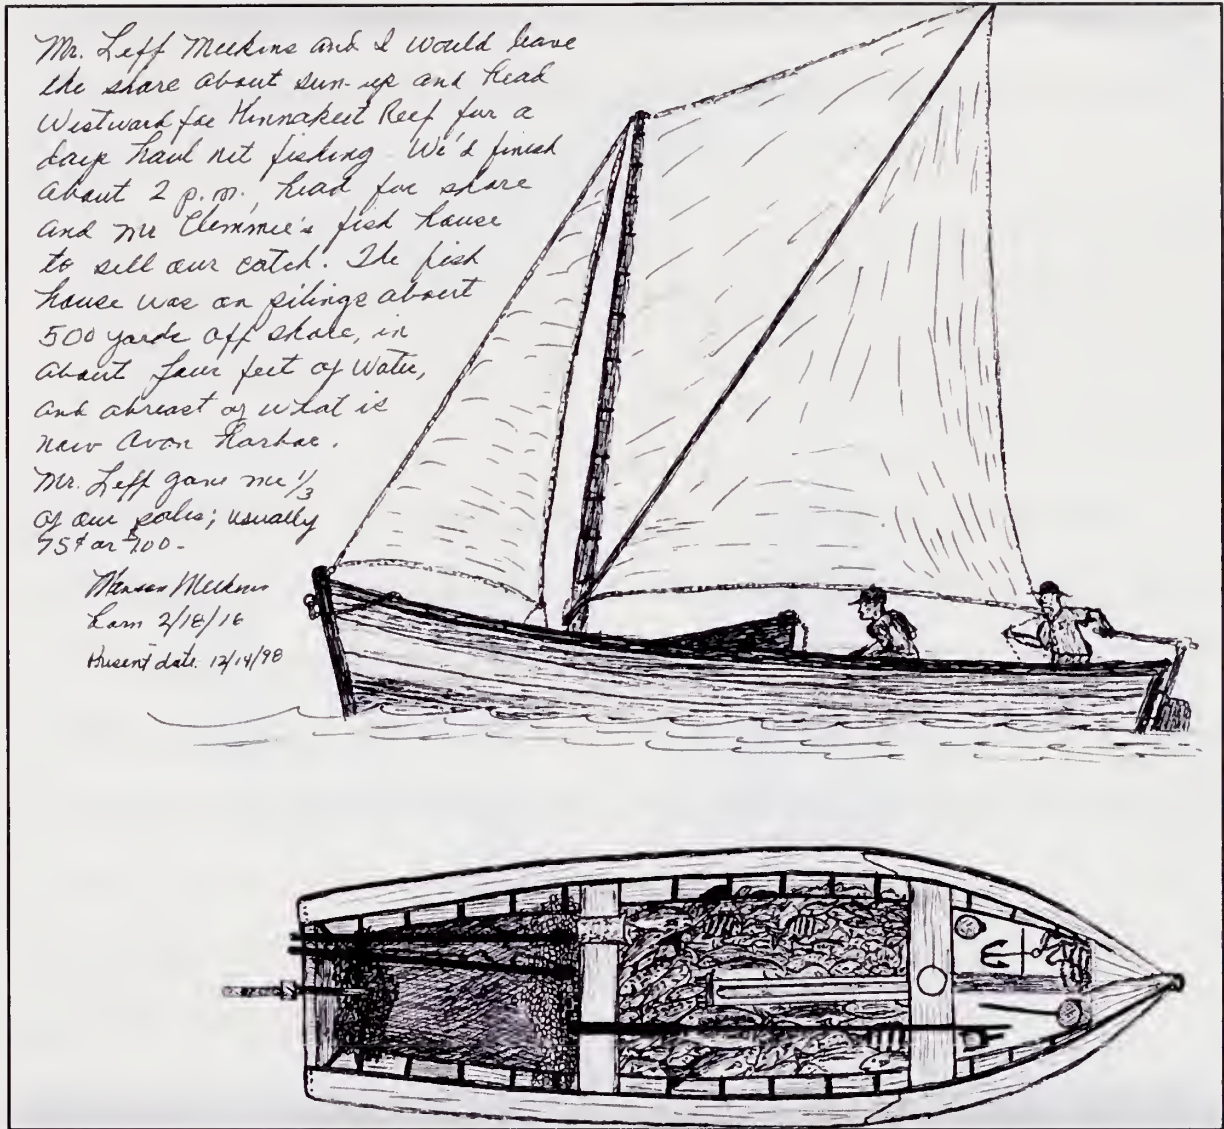 Mr. Leff Meekins and I would leave
the shore about sun-up and head
Westward for Kinnakeet Reef for a
days haul net fishing - We'd finish
about 2 p.m., head for shore
and Mr Clemmie's fish house
to sell our catch. The fish
house was on pilings about
500 yards off shore, in
about four feet of water,
and abreast of what is
now Avon Harbor.
Mr. Leff gave me 1/3
of our sales; usually
75¢ or $1.00-
Meekins
born 2/18/16
Present date: 12/14/98